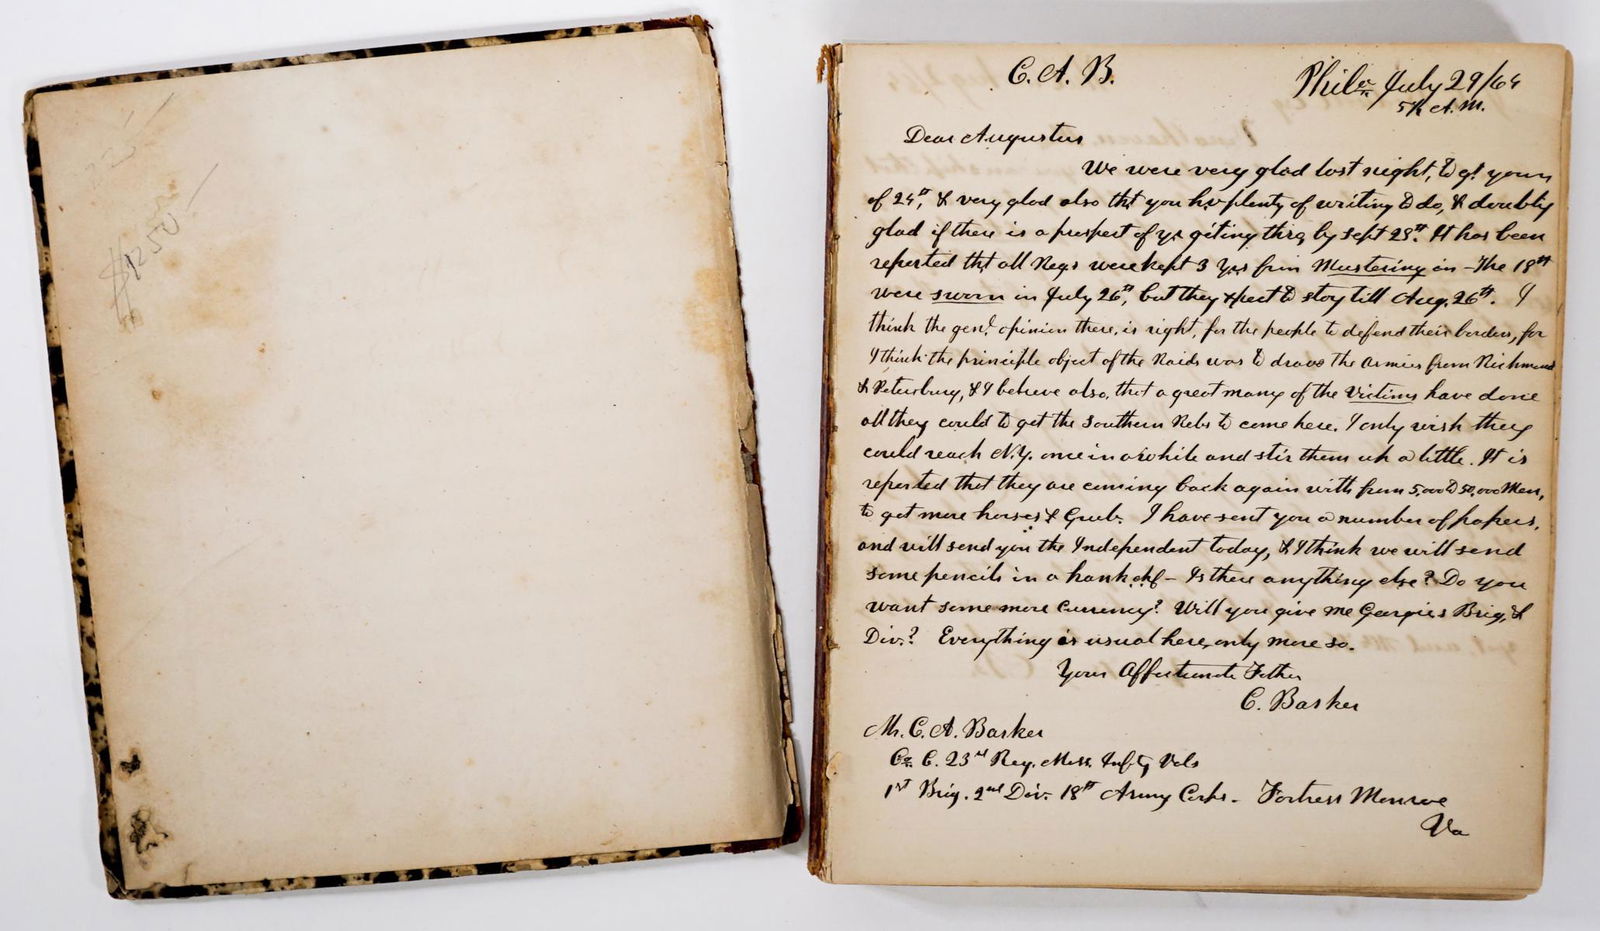 225-
$1250-
C. A. B.
Phila July 29/64
5½ A.M.
Dear Augustus
We were very glad last night, to gt yours
of 24th, & very glad also tht you hv plenty of writing to do, & doubly
glad if there is a prospect of yr geting thrg by Sept 28th. It has been
reported tht all Regs were kept 3 yrs from Mustering in - The 18th
were sworn in July 26th, but they xpect to stay till Aug. 26th. I
think the genl. opinion there, is right, for the people to defend their borders, for
I think the principle object of the Raids was to draw the Armies from Richmond
& Petersburg, & I believe also, that a great many of the Victims have done
all they could to get the Southern Rebs to come here. I only wish they
could reach N.Y. once in a while and stir them up a little. It is
reported that they are coming back again with from 5,000 to 50,000 Men,
to get more horses & Grub. I have sent you a number of papers,
and will send you the Independent today, & I think we will send
some pencils in a hank.chf - Is there anything else? Do you
want some more Currency? Will you give me Georgies Brig, &
Div.? Everything as usual here, only more so.
Your Affectionate Father
C. Barker
Mr. C. A. Barker
Co. C. 23rd Reg. Mass. Infty Vols
1st Brig. 2nd Div. 18th Army Corps. Fortress Monroe
Va